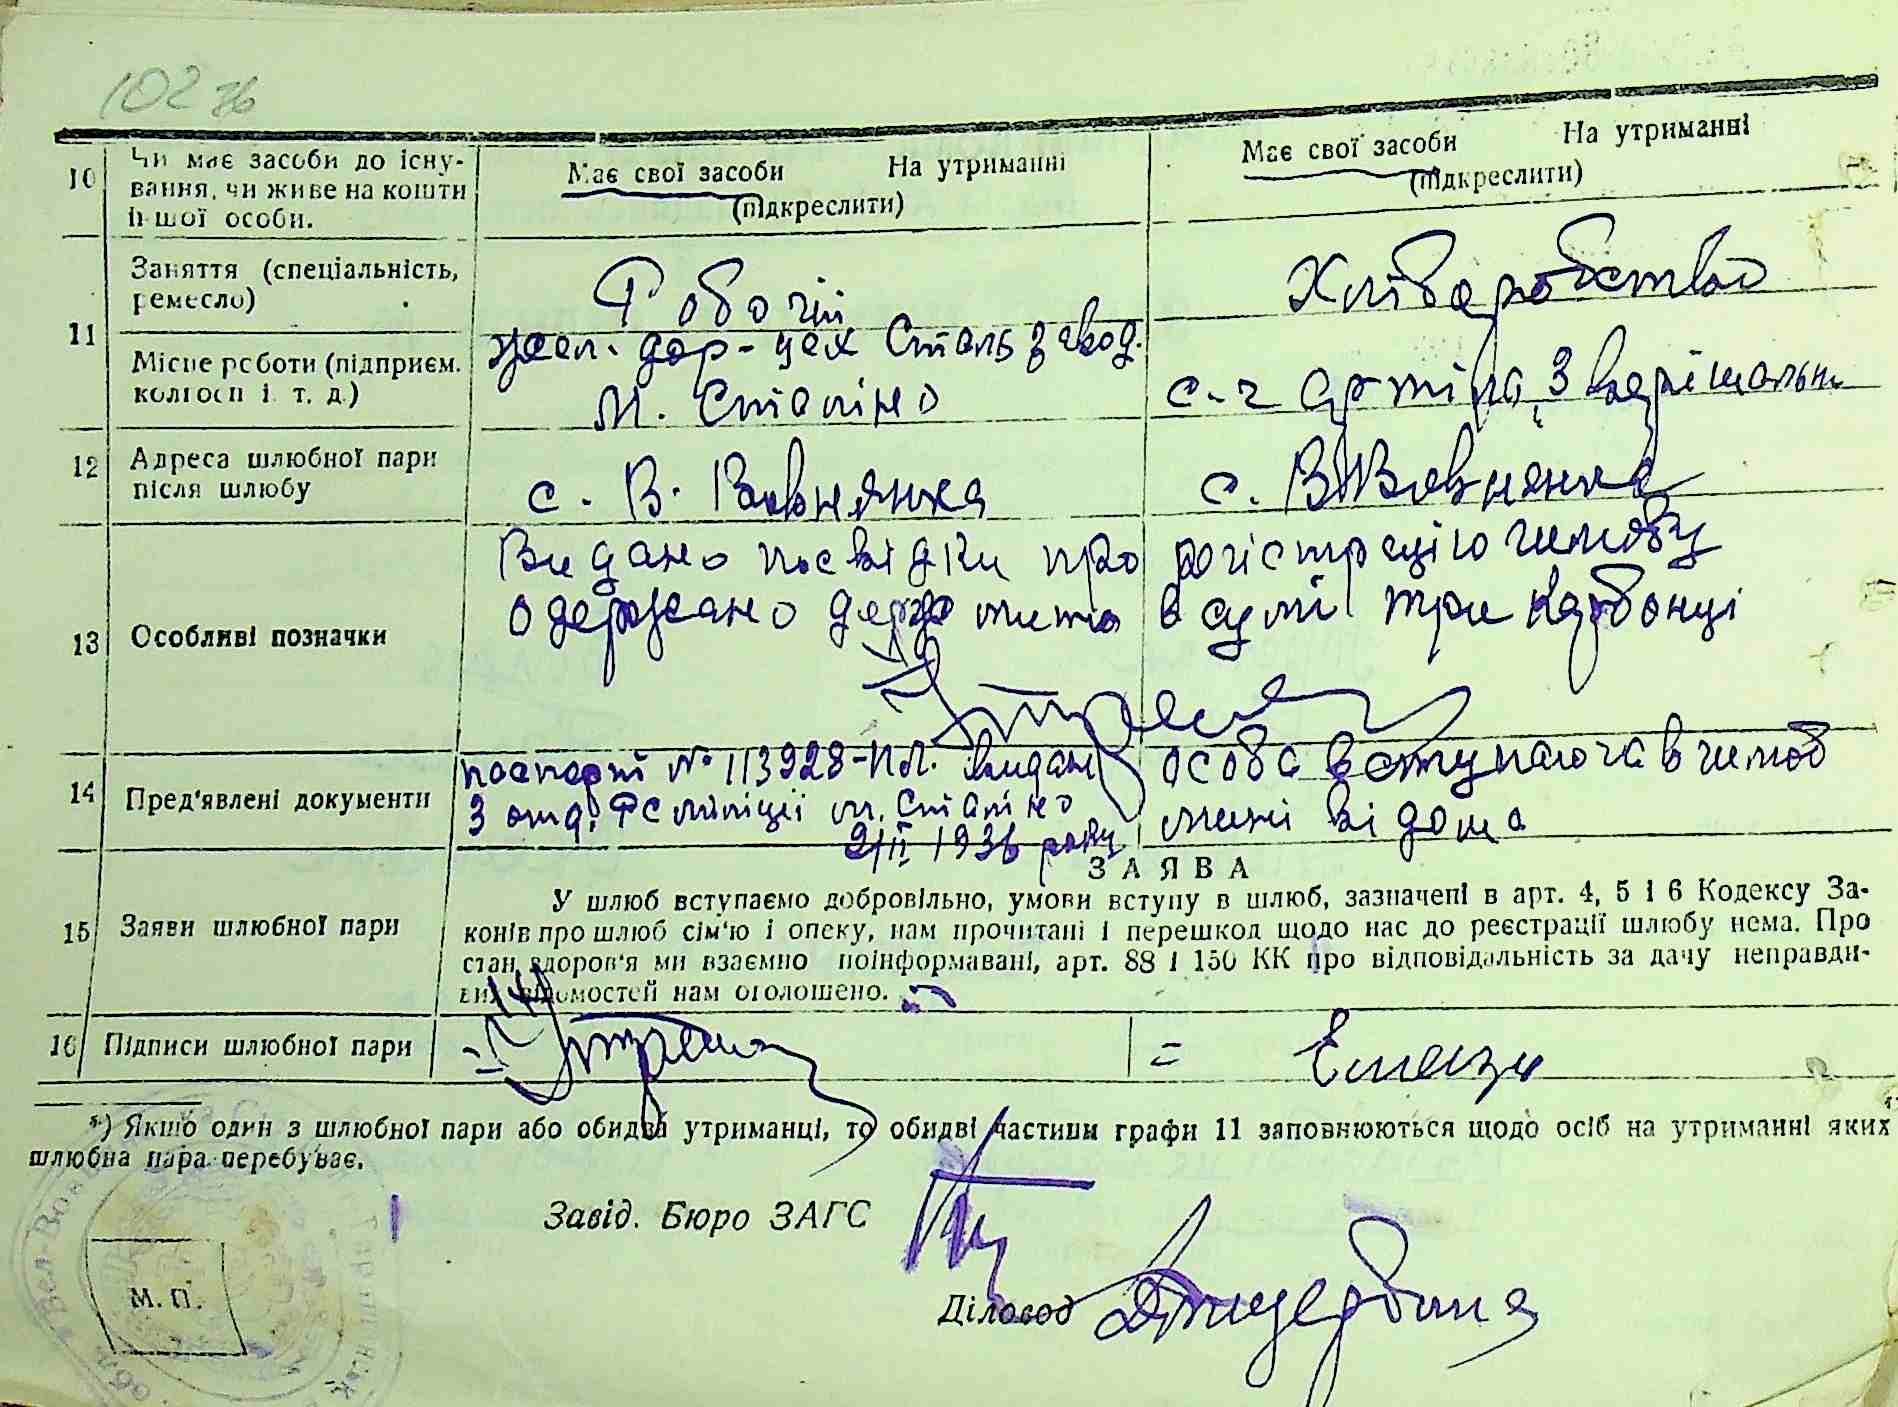 102 зв
10 Чи має засоби до існу- Має свої засоби На утриманні Має свої засоби На утриманні
вання, чи живе на кошти (підкреслити) (підкреслити)
іншої особи.
11 Заняття (спеціальність, Робочій Хліборобство
ремесло)
Місце роботи (підприєм. жел. дор-цех Сталь завод. с-г артіль
колгосп і т. д.) м. Сталіно
12 Адреса шлюбної пари с. В. Вовнянка с. В Вовнянка
після шлюбу
13 Особливі позначки Видано посвідки про регістрацію шлюбу
одержано держ мита в сумі три карбованці
14 Пред'явлені документи паспорт № 113928-ПЛ. видан особа вступаюча в шлюб
3 отд. РС міліції м. Сталіно мені відома
1936 року
15 Заяви шлюбної пари ЗАЯВА
У шлюб вступаємо добровільно, умови вступу в шлюб, зазначені в арт. 4, 5 і 6 Кодексу За-
конів про шлюб сім'ю і опеку, нам прочитані і перешкод щодо нас до реєстрації шлюбу нема. Про
стан здоров'я ми взаємно поінформавані, арт. 88 і 150 КК про відповідальність за дачу неправди-
вих відомостей нам оголошено.
16 Підписи шлюбної пари
*) Якщо один з шлюбної пари або обидва утриманці, то обидві частини графи 11 заповнюються щодо осіб на утриманні яких
шлюбна пара перебуває.
Завід. Бюро ЗАГС
М. П.
Діловод